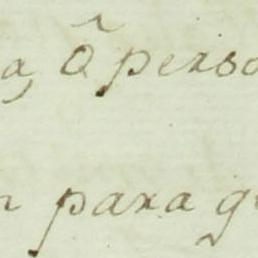 a, q̃ perso
n para q